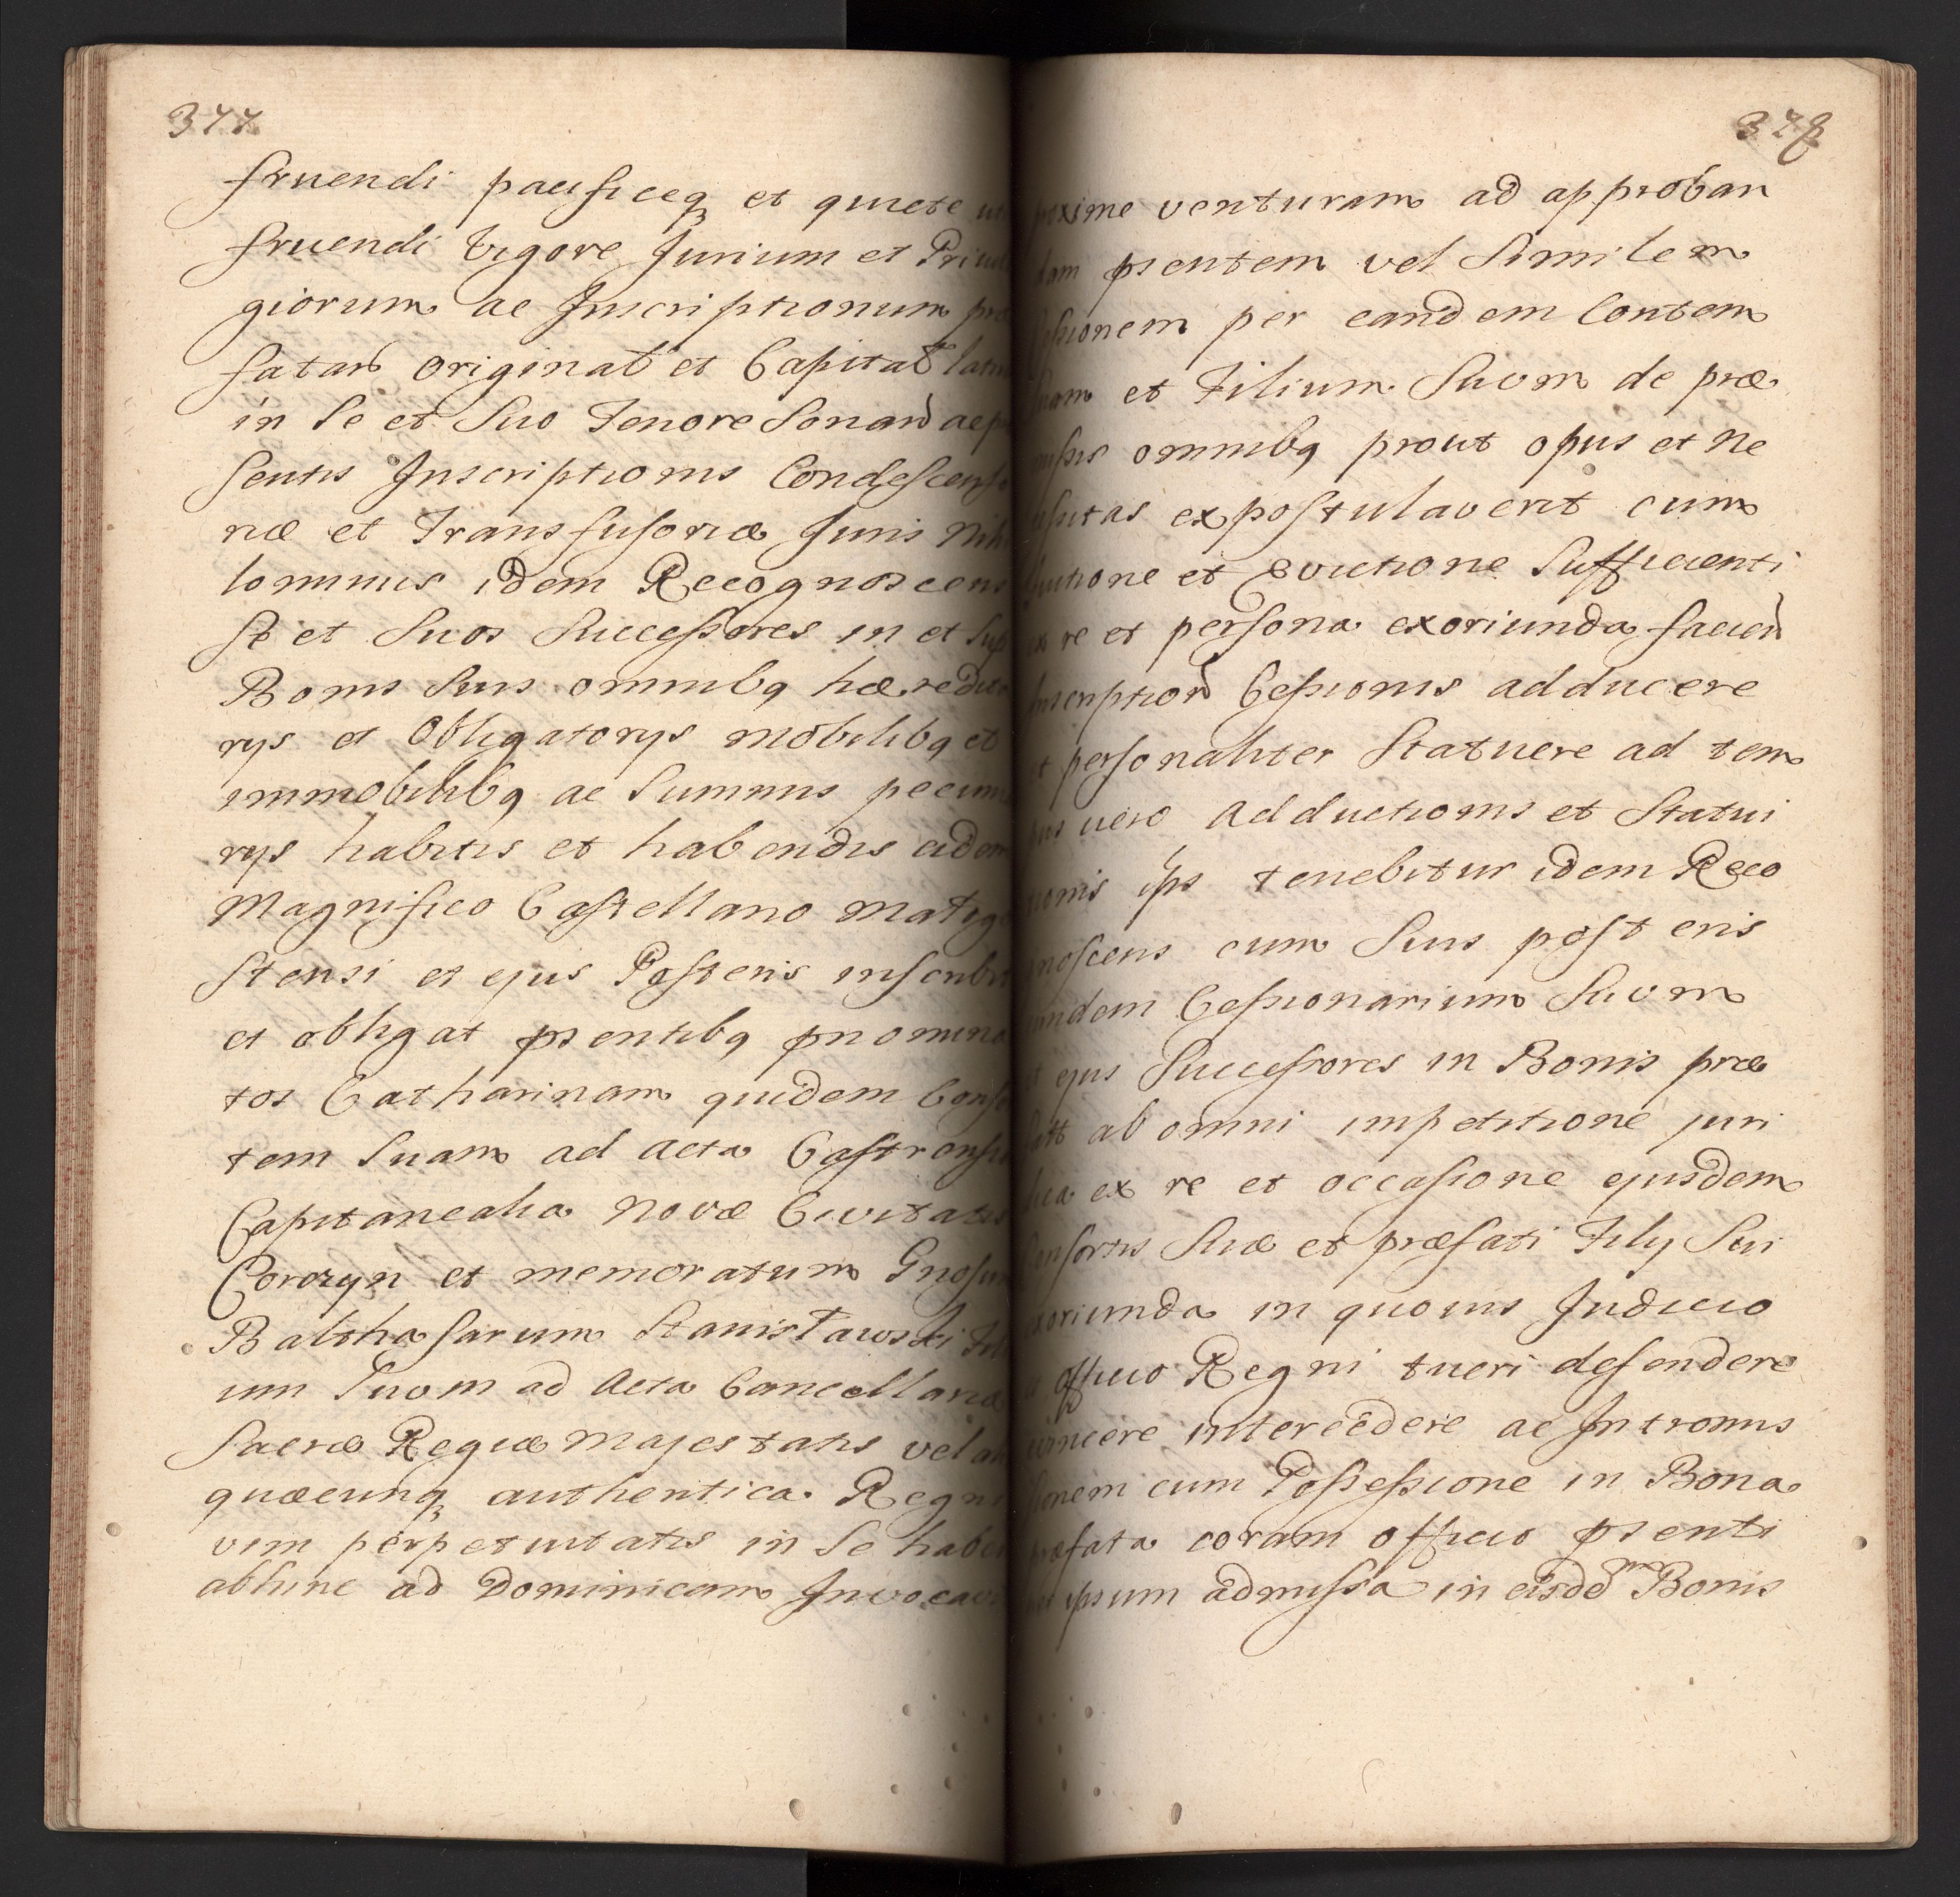 377
fruendi pacificeq et quiete
fruendi Vigore Jurium et Privi
giorum ac Inscriptionum præ
fatar̃ original et Capital
in Se et Suo Tenore Sonan̄ ac
sentis Inscriptionis Condescenso
riæ et Transfusoriæ Juris Nih
lominus idem Recognoscens
Se et Suos Successores in et Sup
Bonis Suis omnibq hæredita
rys et Obligatorys mobilibq et
immobilibq ac Summis pecunia
rys habitis et habendis eidem
Magnifico Castellano Małogo
stensi et ejus Posteris inscribit
et obligat psentibq pnomina
tos Catharinam quidem Conso
tem Suam ad Acta Castrensia
Capitanealia Novæ Civitatis
Corczyn et memoratum Gnosum
Balthasarum Stanisławski Fil
ium Suum ad Acta Cancellariæ
Sacræ Regiæ Majestatis vel
quæcunq authentica Regni
vim perpetuitatis in Se haben
abhinc ad Dominicam Invocavi
378
proxime venturam ad approban
dam psentem vel Similem
essionem per eandem Contem
Suam et Filium Suum de præ
missis omnibq prout opus et ne
cessitas expostulaverit cum
et Evictione Sufficienti
ex re et persona exoriunda facien̄
Inscription̄ Cessionis adducere
et personaliter Statuere ad tem
pus vero adductionis et Statui
tionis ips tenebitur idem Reco
gnoscens cum Suis posteris
eundem Cessionarium Suum
et ejus Successores in Bonis præ
fatt ab omni impetitione juri
dica ex re et occasione ejusdem
Consortis Suæ et præfati Filij Sui
exoriunda in quovis Judicio
et officio Regni tueri defendere
evincere intercedere ac Intromis
sionem cum Possessione in Bona
præfata coram officio psenti
ipsum admissa in eisdd͠m Bonis